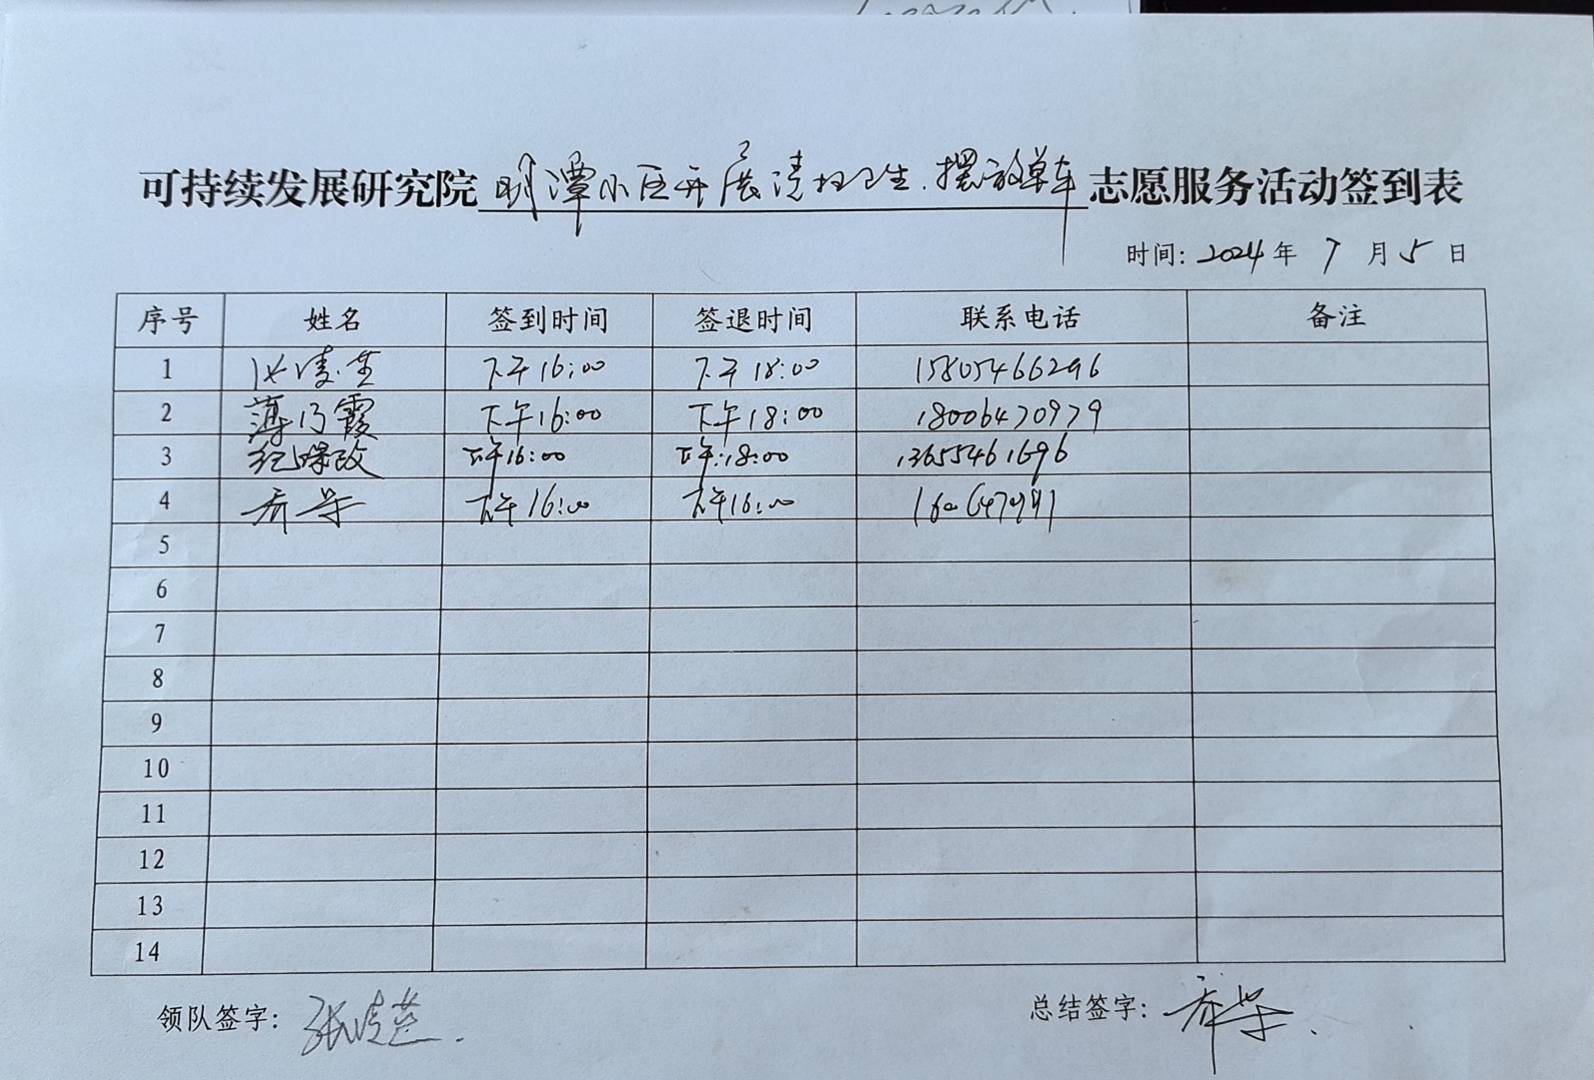 可持续发展研究院明潭小区开展清扫卫生、摆放单车志愿服务活动签到表
时间: 2024 年 7 月 5 日
序号 姓名 签到时间 签退时间 联系电话 备注
1 下午16:00 下午18:00 15805466296
2 薄乃霞 下午16:00 下午18:00 18006470979
3 下午16:00 下午:18:00 13655461696
4 乔学 下午16:00 下午16:00
5
6
7
8
9
10
11
12
13
14
领队签字: 总结签字: 乔学